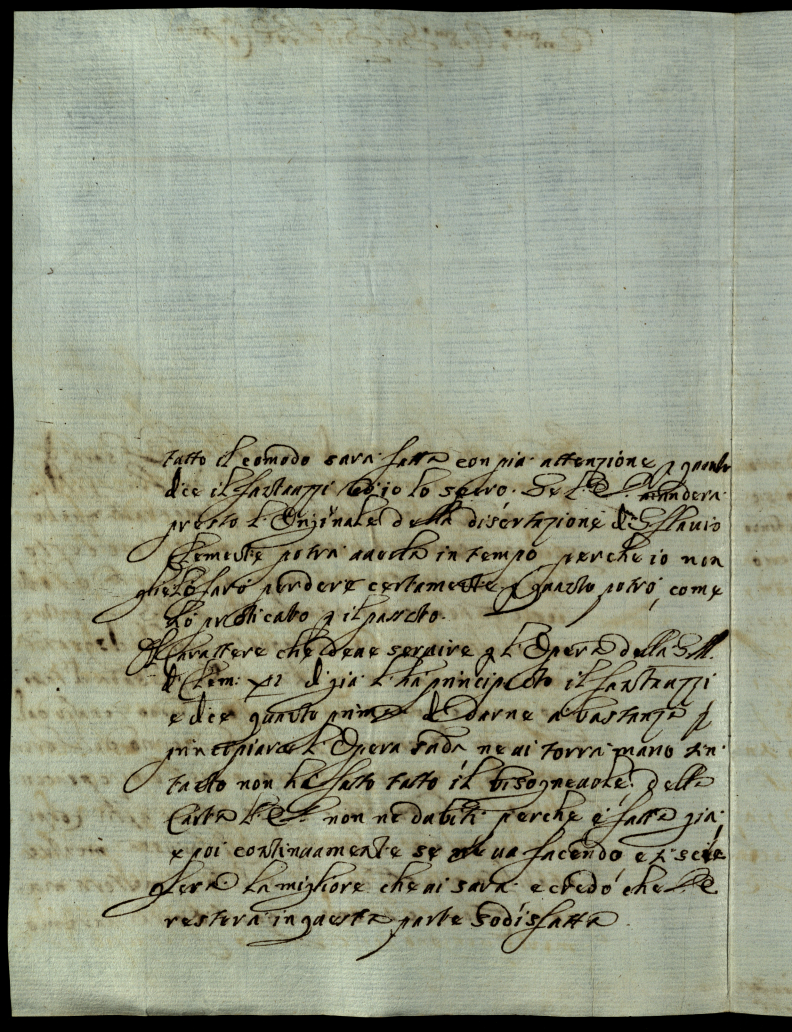 tutto il comodo sarà fatta con più attenzione, p quanto
dice il fantauzzi ed io lo spero. Se V. E. manderà
presto l'Originale della disertazione di S. Flauio
Clemente potrà auerla in tempo perche io non
glielo farò perdere certamente p quanto potrò, come
hò praticato p il passato.
Il Carattere che deue seruire p l'Opera della S. M.
di Clem: XI di già l'hà principiato il fantauzzi
e dice quanto prima di darne a bastanza p
principiare l'Opera sud.a ne ui torrà mano in=
tanto non hà fatto tutto il bisogneuole; della
Carta V. E. non ne dubiti perche è fatta già
e poi continuamente se ne ua facendo e si scie=
glierà la migliore che ui sarà e credo che V. E.
resterà in questa parte sodisfatta.